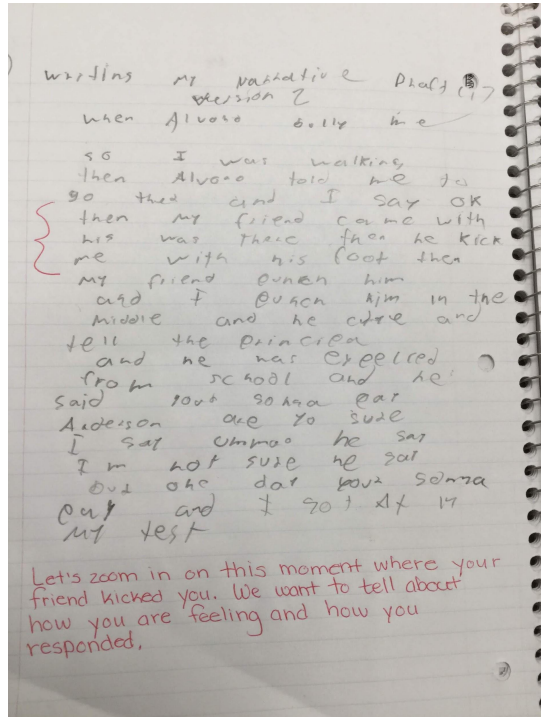 writing my Narrative Draft
version 2
when Alvoro bully me
so I was walking
then Alvoro told me to
go ther and I say ok
then my friend came with
his was there then he kick
me with his foot then
my friend punch him
and I punch him in the
middle and he crye and
tell the principa
and he was expelled
from school and he
said your gonna pay
Anderson are yo sure
I say ummao he say
I m not sure he say
but one day your gonna
pay and I got A+ in
my test
Let's zoom in on this moment where your
friend kicked you. We want to tell about
how you are feeling and how you
responded.